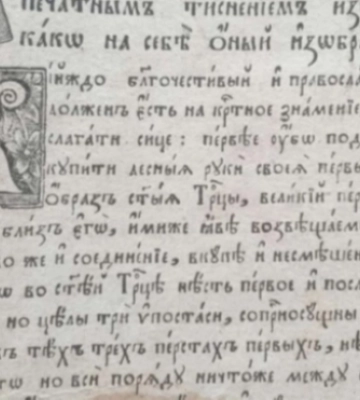 печатнымъ тисненіемъ из
ка́кѡ на себѣ̀ ѻ҆́ный и҆з̾ѡбр
і́йждо бл҃гочести́вый и҆ правосла
до́лженъ є҆́сть на кр҃тное зна́меніе
слага́ти си́це : пе́рвѣе ᲂу҆́бѡ под
купи́ти десны́ѧ рꙋкѝ своеѧ̀ пе́рвы
ѻ҆́бразъ ст҃ы́ѧ Тр҃цы, вели́кій пер
бли́зъ є҆гѡ̀, и҆́миже ꙗ҆́вѣ возвѣща́ем
о же и҆ соедине́ніе, вкꙋ́пѣ и҆ несмѣше́н
ѡ во ст҃ѣ́й Тр҃цѣ нѣ́сть пе́рвое и҆ посл
но цѣ́лы трѝ ѵ҆поста́си, соприсносꙋ́щны
ъ тѣ́хъ тре́хъ перста́хъ пе́рвыхъ, нѣ
гѡ но всѝ поря́дꙋ ничто́же междꙋ̀